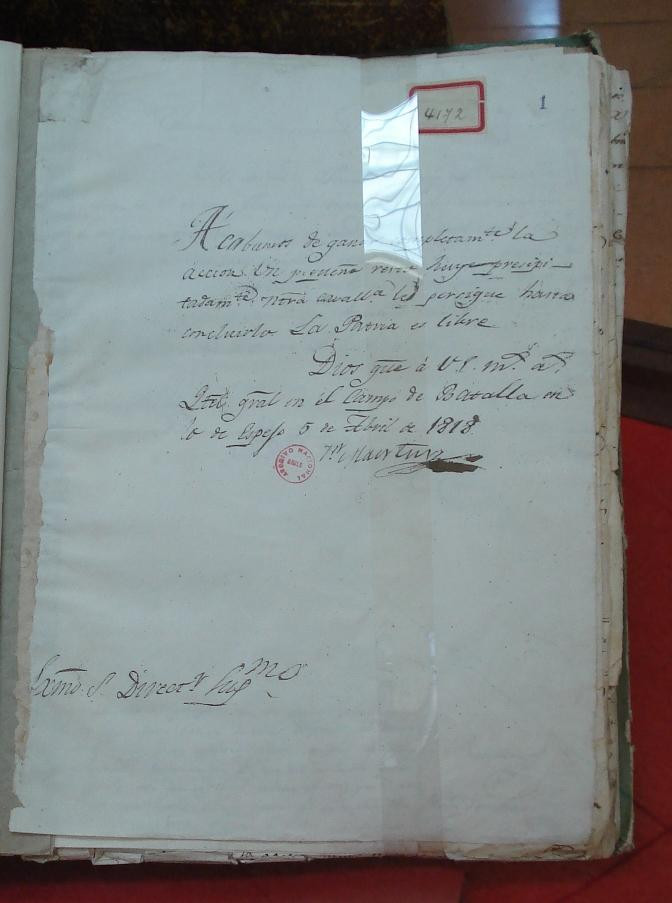 4172
1
Acabamos de ganar completam.te la
accion. Un pequeño resto huye precipi-
tadam.te ntra cavall.a lo persigue hasta
concluirlo. La Patria es libre
Dios gue á V.E. m.s a.s
Qtel gral en el Campo de Batalla en
lo de Espejo 5 de Abril de 1818
ARCHIVO NACIONAL
CHILE
Exmo. S. Direct.r Sup.mo